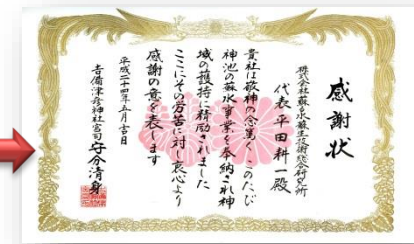 感謝状
株式会社蘇る水蘇生技術総合研究所
代表 平田耕一殿
貴社は敬神の念篤く このたび
神池の蘇水事業を奉納され神
域の護持に精励されました
ここにその労苦に対し衷心より
感謝の意を表します
平成二十四年五月吉日
吉備津彦神社宮司 守分清身